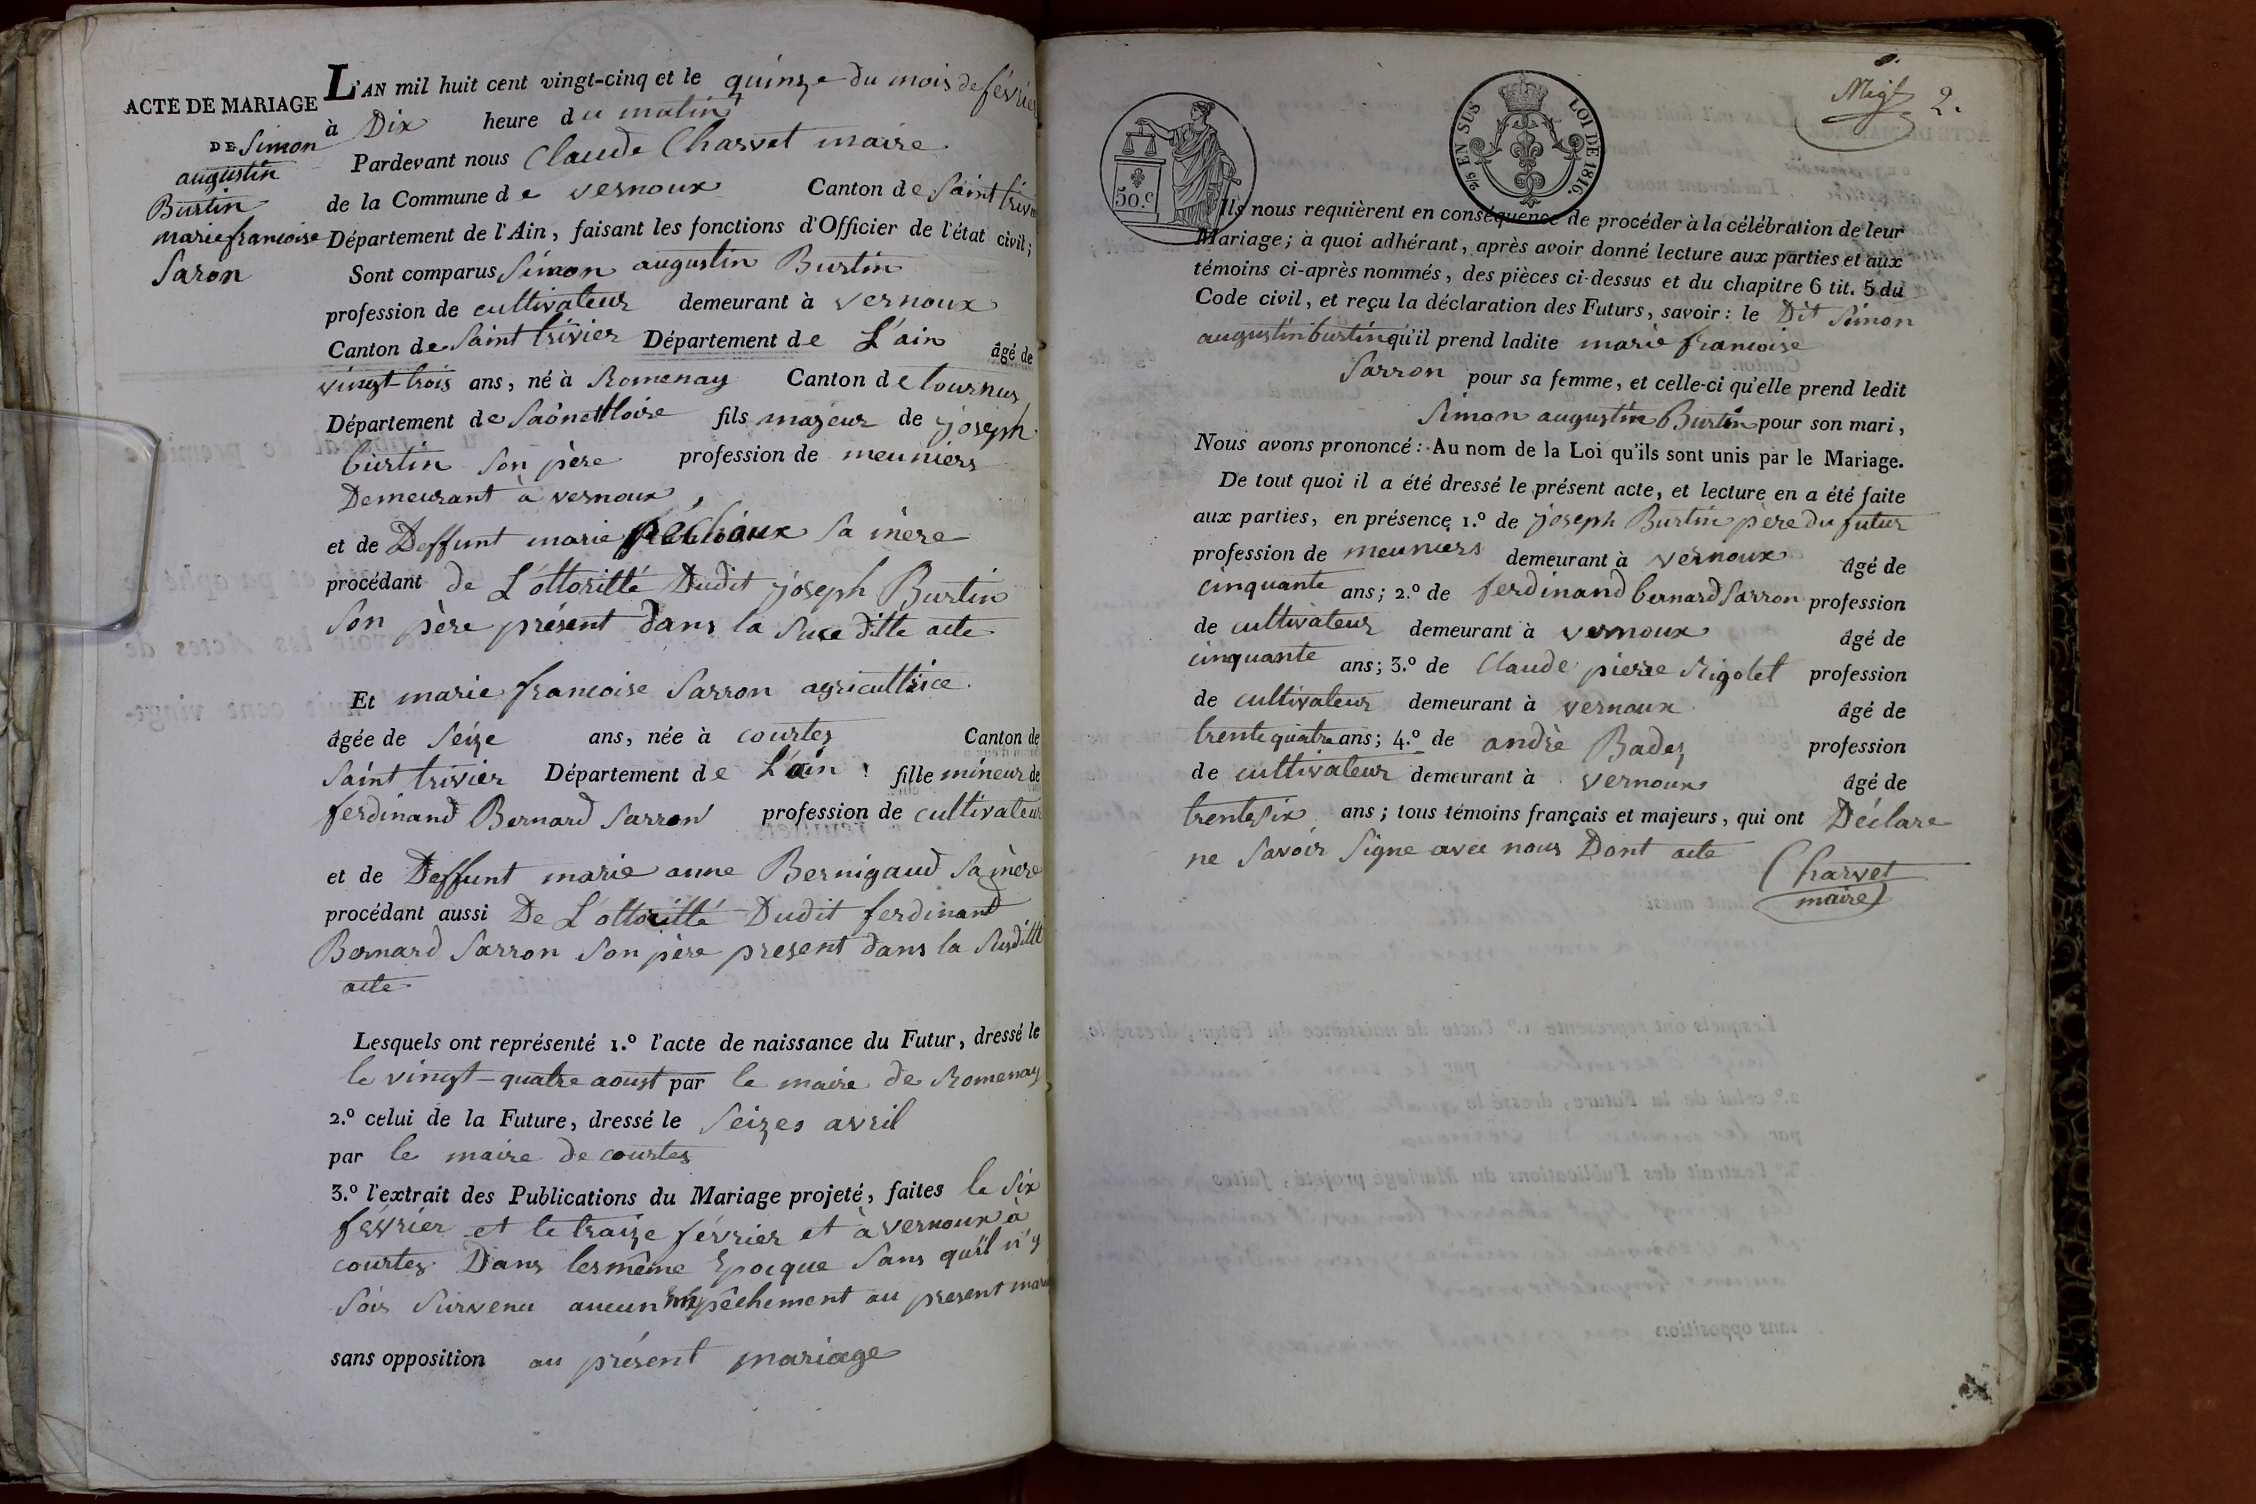 ACTE DE MARIAGE
DE Simon
augustin
Burtin
marie francoise
Saron
L'AN mil huit cent vingt-cinq et le quinze du mois de février
à Dix heure du matin
Pardevant nous Claude Charvet maire
de la Commune de vernoux Canton de Saint trivier
Département de l'Ain, faisant les fonctions d'Officier de l'état civil;
Sont comparus Simon augustin Burtin
profession de cultivateur demeurant à vernoux
Canton de Saint trivier Département de L'ain âgé de
vingt-trois ans, né à Romenay Canton de tournus
Département de Saône et loire fils majeur de joseph
burtin Son père profession de meuniers
Demeurant à vernoux,
et de Deffunt marie sa mère
procédant de L'ottoritté Dudit joseph Burtin
Son père présent dans la Suce ditte acte
Et marie francoise Sarron agricultrice.
âgée de Séize ans, née à courtes Canton de
Saint trivier Département de L'ain fille mineur de
ferdinand Bernard Sarron profession de cultivateur
et de Deffunt marie anne Bernigaud Sa mère
procédant aussi De L'ottoritté Dudit ferdinand
Bernard Sarron Son père present dans la Susditte
acte
Lesquels ont représenté 1.º l'acte de naissance du Futur, dressé le
le vingt-quatre aoust par le maire de Romenay
2.º celui de la Future, dressé le Seizes avril
par le maire de courtes
3.º l'extrait des Publications du Mariage projeté, faites le Six
février et le traize février et à vernoux à
courtes Dans les même Epocque Sans qu'il n'y
Sois Survenu aucun empêchement au present
sans opposition au présent mariage
50.c
2/5 EN SUS
LOI DE 1816.
2.
Ils nous requièrent en conséquence de procéder à la célébration de leur
Mariage; à quoi adhérant, après avoir donné lecture aux parties et aux
témoins ci-après nommés, des pièces ci-dessus et du chapitre 6 tit. 5 du
Code civil, et reçu la déclaration des Futurs, savoir: le Dit Simon
augustin burtin qu'il prend ladite marie francoise
Sarron pour sa femme, et celle-ci qu'elle prend ledit
Simon augustin Burtin pour son mari,
Nous avons prononcé: Au nom de la Loi qu'ils sont unis par le Mariage.
De tout quoi il a été dressé le présent acte, et lecture en a été faite
aux parties, en présence 1.º de joseph Burtin père du futur
profession de meuniers demeurant à vernoux âgé de
cinquante ans; 2.º de ferdinand bernard Sarron profession
de cultivateur demeurant à vernoux âgé de
cinquante ans; 3.º de Claude pierre Rigolet profession
de cultivateur demeurant à vernoux âgé de
trente quatre ans; 4.º de andrè Badez profession
de cultivateur demeurant à vernoux âgé de
trente six ans; tous témoins français et majeurs, qui ont Déclare
ne Savoir Signe avec nous Dont acte
Charvet
maire